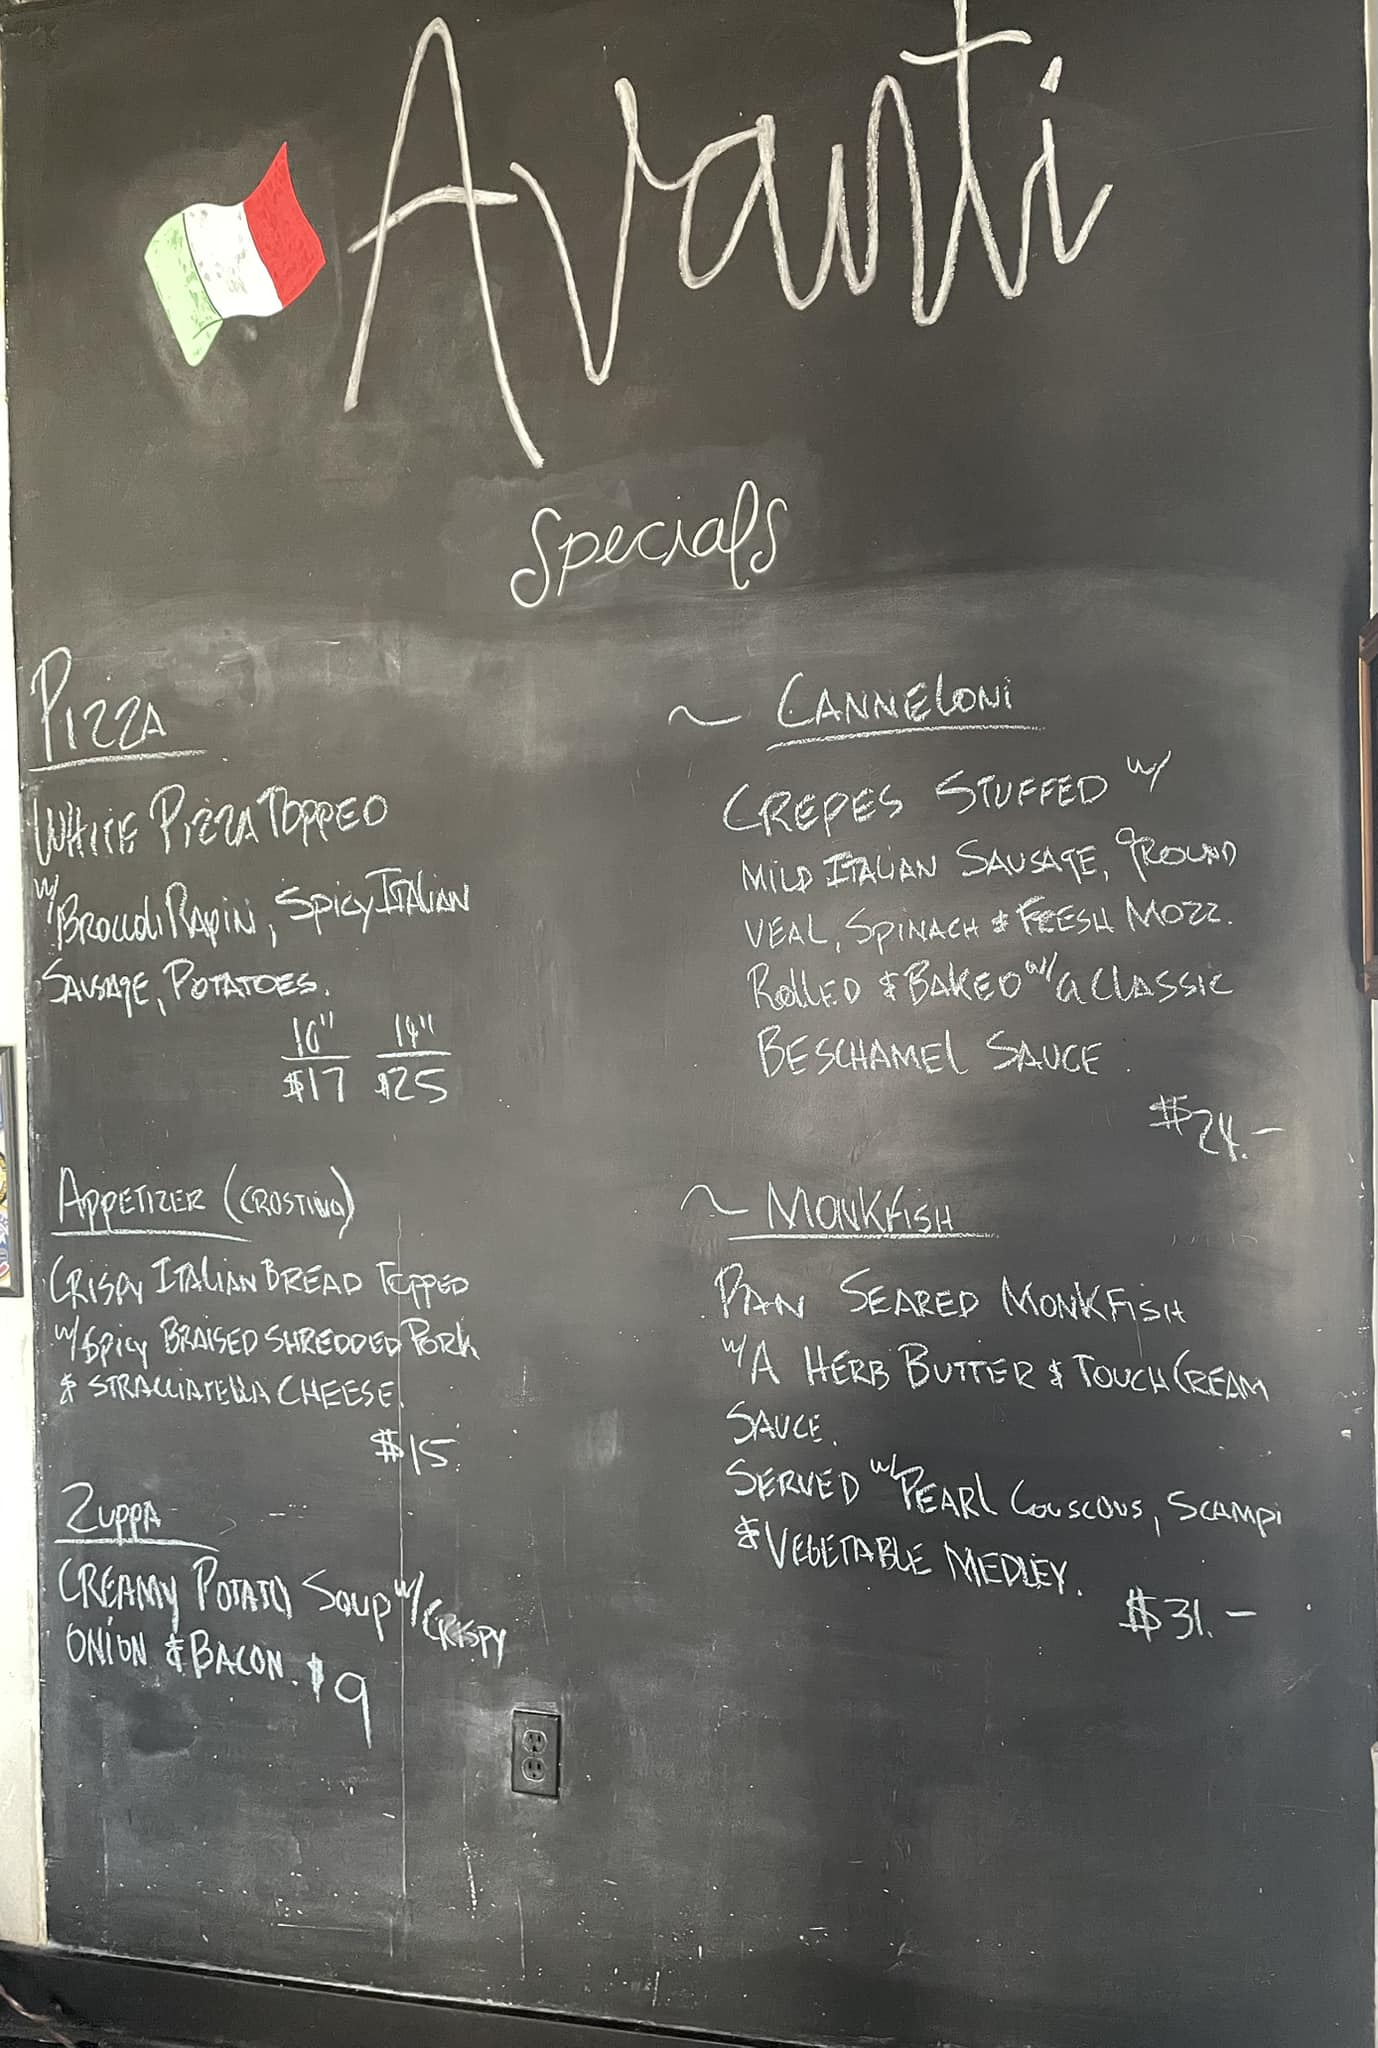 Avanti
Specials
PIZZA
WHITE PIZZA TOPPED
w/ BROCCOLI RAPINI, SPICY ITALIAN
SAUSAGE, POTATOES.
10" 14"
$17 $25
APPETIZER (CROSTINO)
CRISPY ITALIAN BREAD TOPPED
w/ SPICY BRAISED SHREDDED PORK
& STRACCIATELLA CHEESE.
$15.
ZUPPA
CREAMY POTATO SOUP w/ CRISPY
ONION & BACON. $9
~ CANNELONI
CREPES STUFFED w/
MILD ITALIAN SAUSAGE, GROUND
VEAL, SPINACH & FRESH MOZZ.
ROLLED & BAKED w/ a CLASSIC
BESCHAMEL SAUCE.
$24.-
~ MONKFISH
PAN SEARED MONKFISH
w/ A HERB BUTTER & TOUCH CREAM
SAUCE.
SERVED w/ PEARL COUSCOUS, SCAMPI
& VEGETABLE MEDLEY.
$31.-